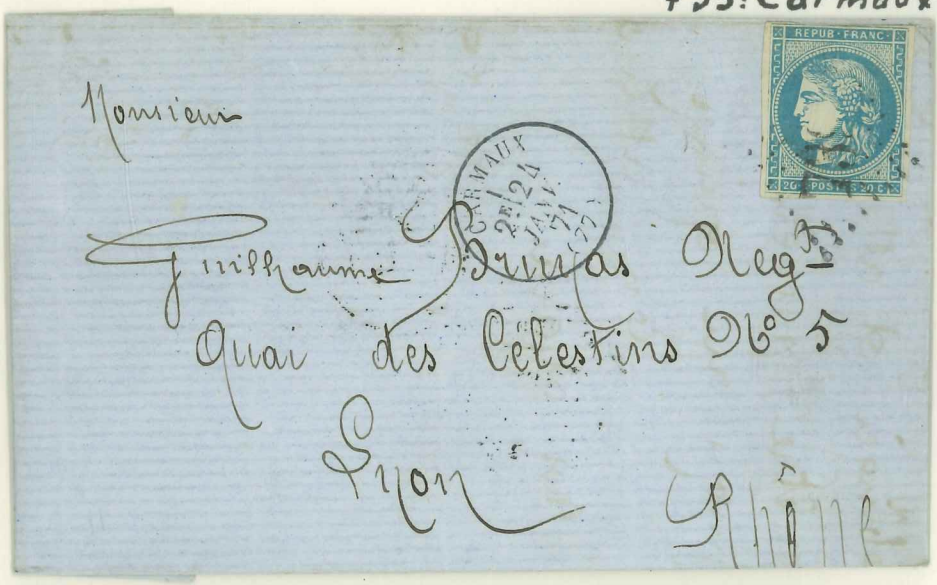 Carmaux
REPUB · FRANC ·
20 c POSTES 20 c
Monsieur
CARMAUX
1
2E 24
JANV
71
(77)
Guilhaume Brunas Negt
Quai des Célestins No 5
Lyon
Rhône